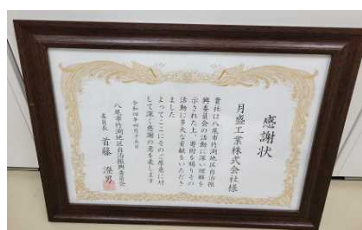 感謝状
月盛工業株式会社様
貴社は八尾市竹渕地区自治振
興委員会の活動に深い理解を
示された上、寄附を賜りその
活動に多大な貢献をいただき
ました
よってここにそのご厚意に対
して深く感謝の意を表します
令和四年四月十五日
八尾市竹渕地区自治振興委員会
委員長 首藤 澄男